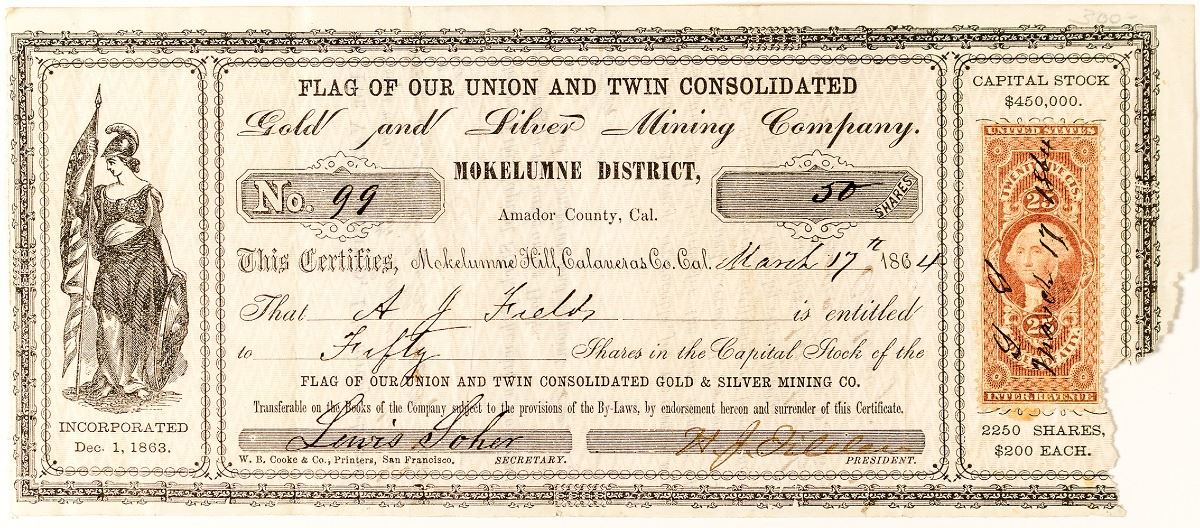 300
FLAG OF OUR UNION AND TWIN CONSOLIDATED
Gold and Silver Mining Company.
MOKELUMNE DISTRICT,
No. 99
50 SHARES
Amador County, Cal.
This Certifies, Mokelumne Hill, Calaveras Co. Cal. March 17th 1864
That A J Fields is entitled
to Fifty Shares in the Capital Stock of the
FLAG OF OUR UNION AND TWIN CONSOLIDATED GOLD & SILVER MINING CO.
Transferable on the Books of the Company subject to the provisions of the By-Laws, by endorsement hereon and surrender of this Certificate.
Lewis Soher
W. B. Cooke & Co., Printers, San Francisco. SECRETARY.
PRESIDENT.
INCORPORATED
Dec. 1, 1863.
CAPITAL STOCK
$450,000.
UNITED STATES
March 17 1864
INTER. REVENUE
2250 SHARES,
$200 EACH.